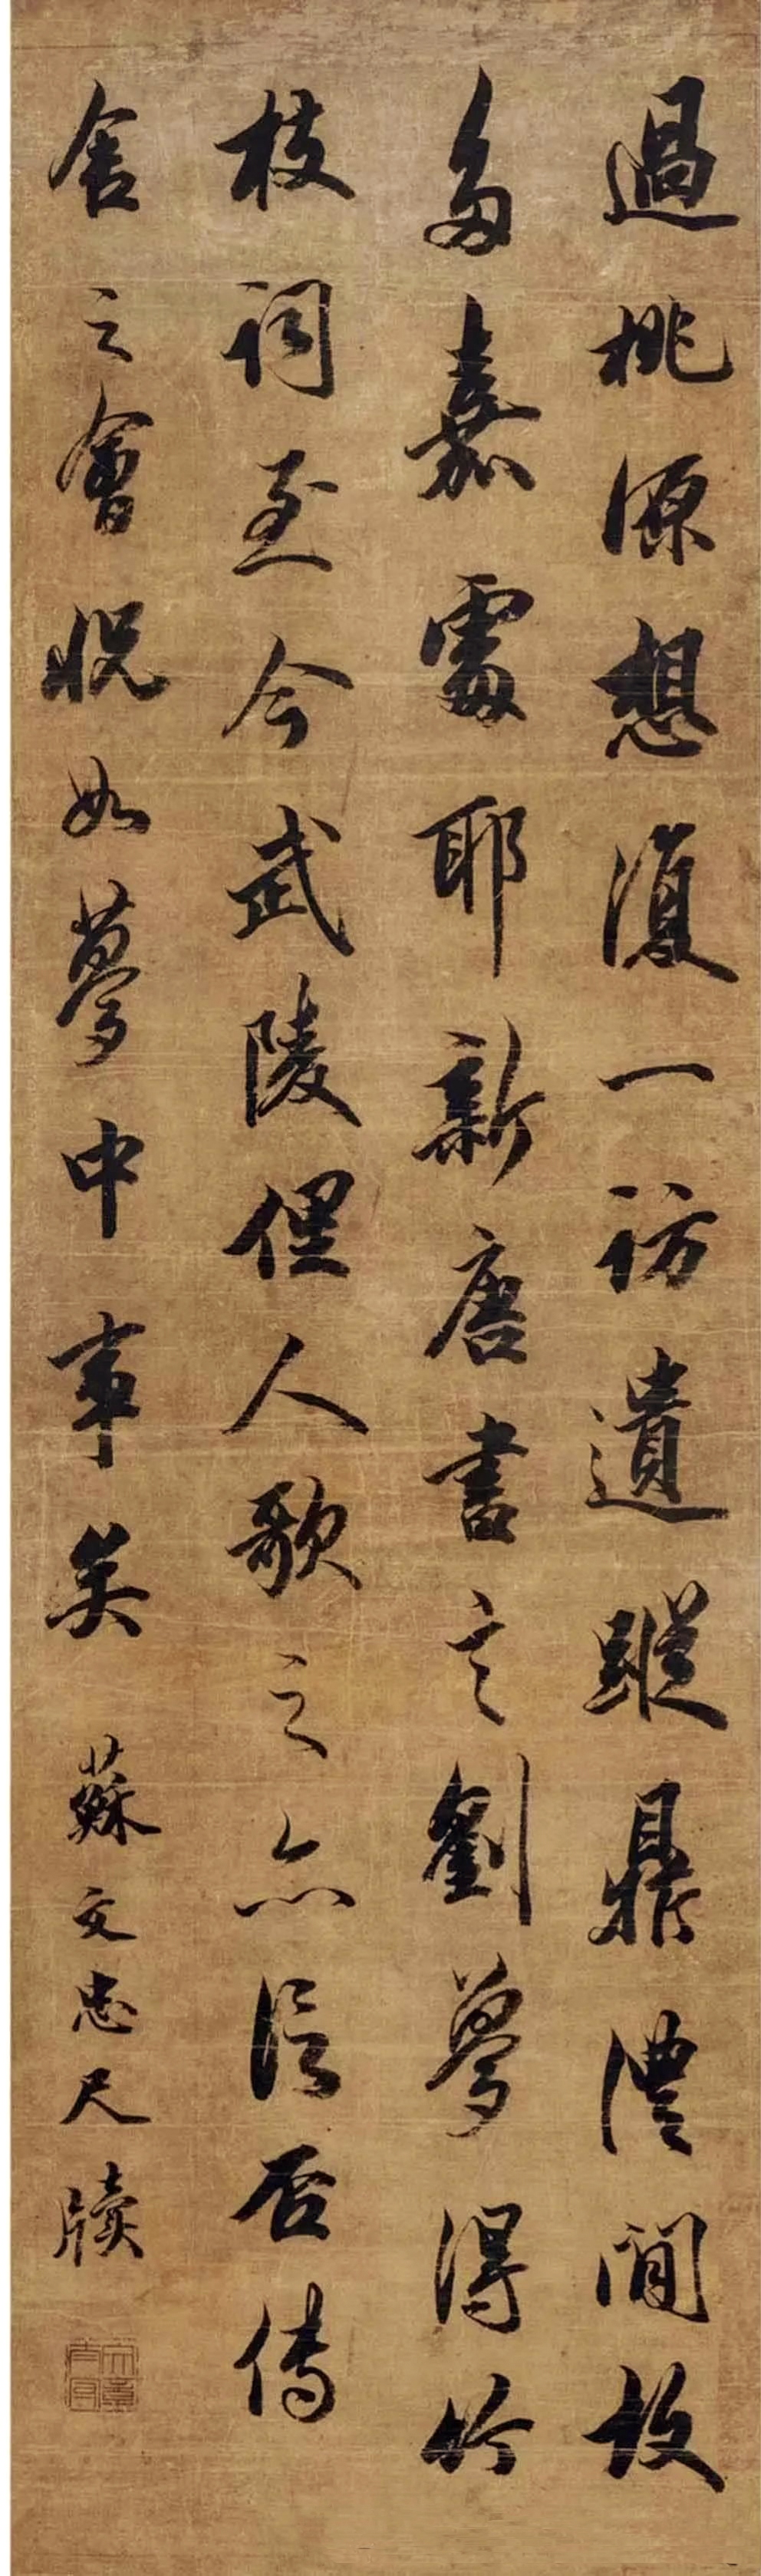 過桃源想復一訪遺蹤鼎澧間故
多嘉處耶新唐書言劉夢得竹
枝詞至今武陵俚人歌之亦信否傳
舍之會怳如夢中事矣 蘇文忠尺牘